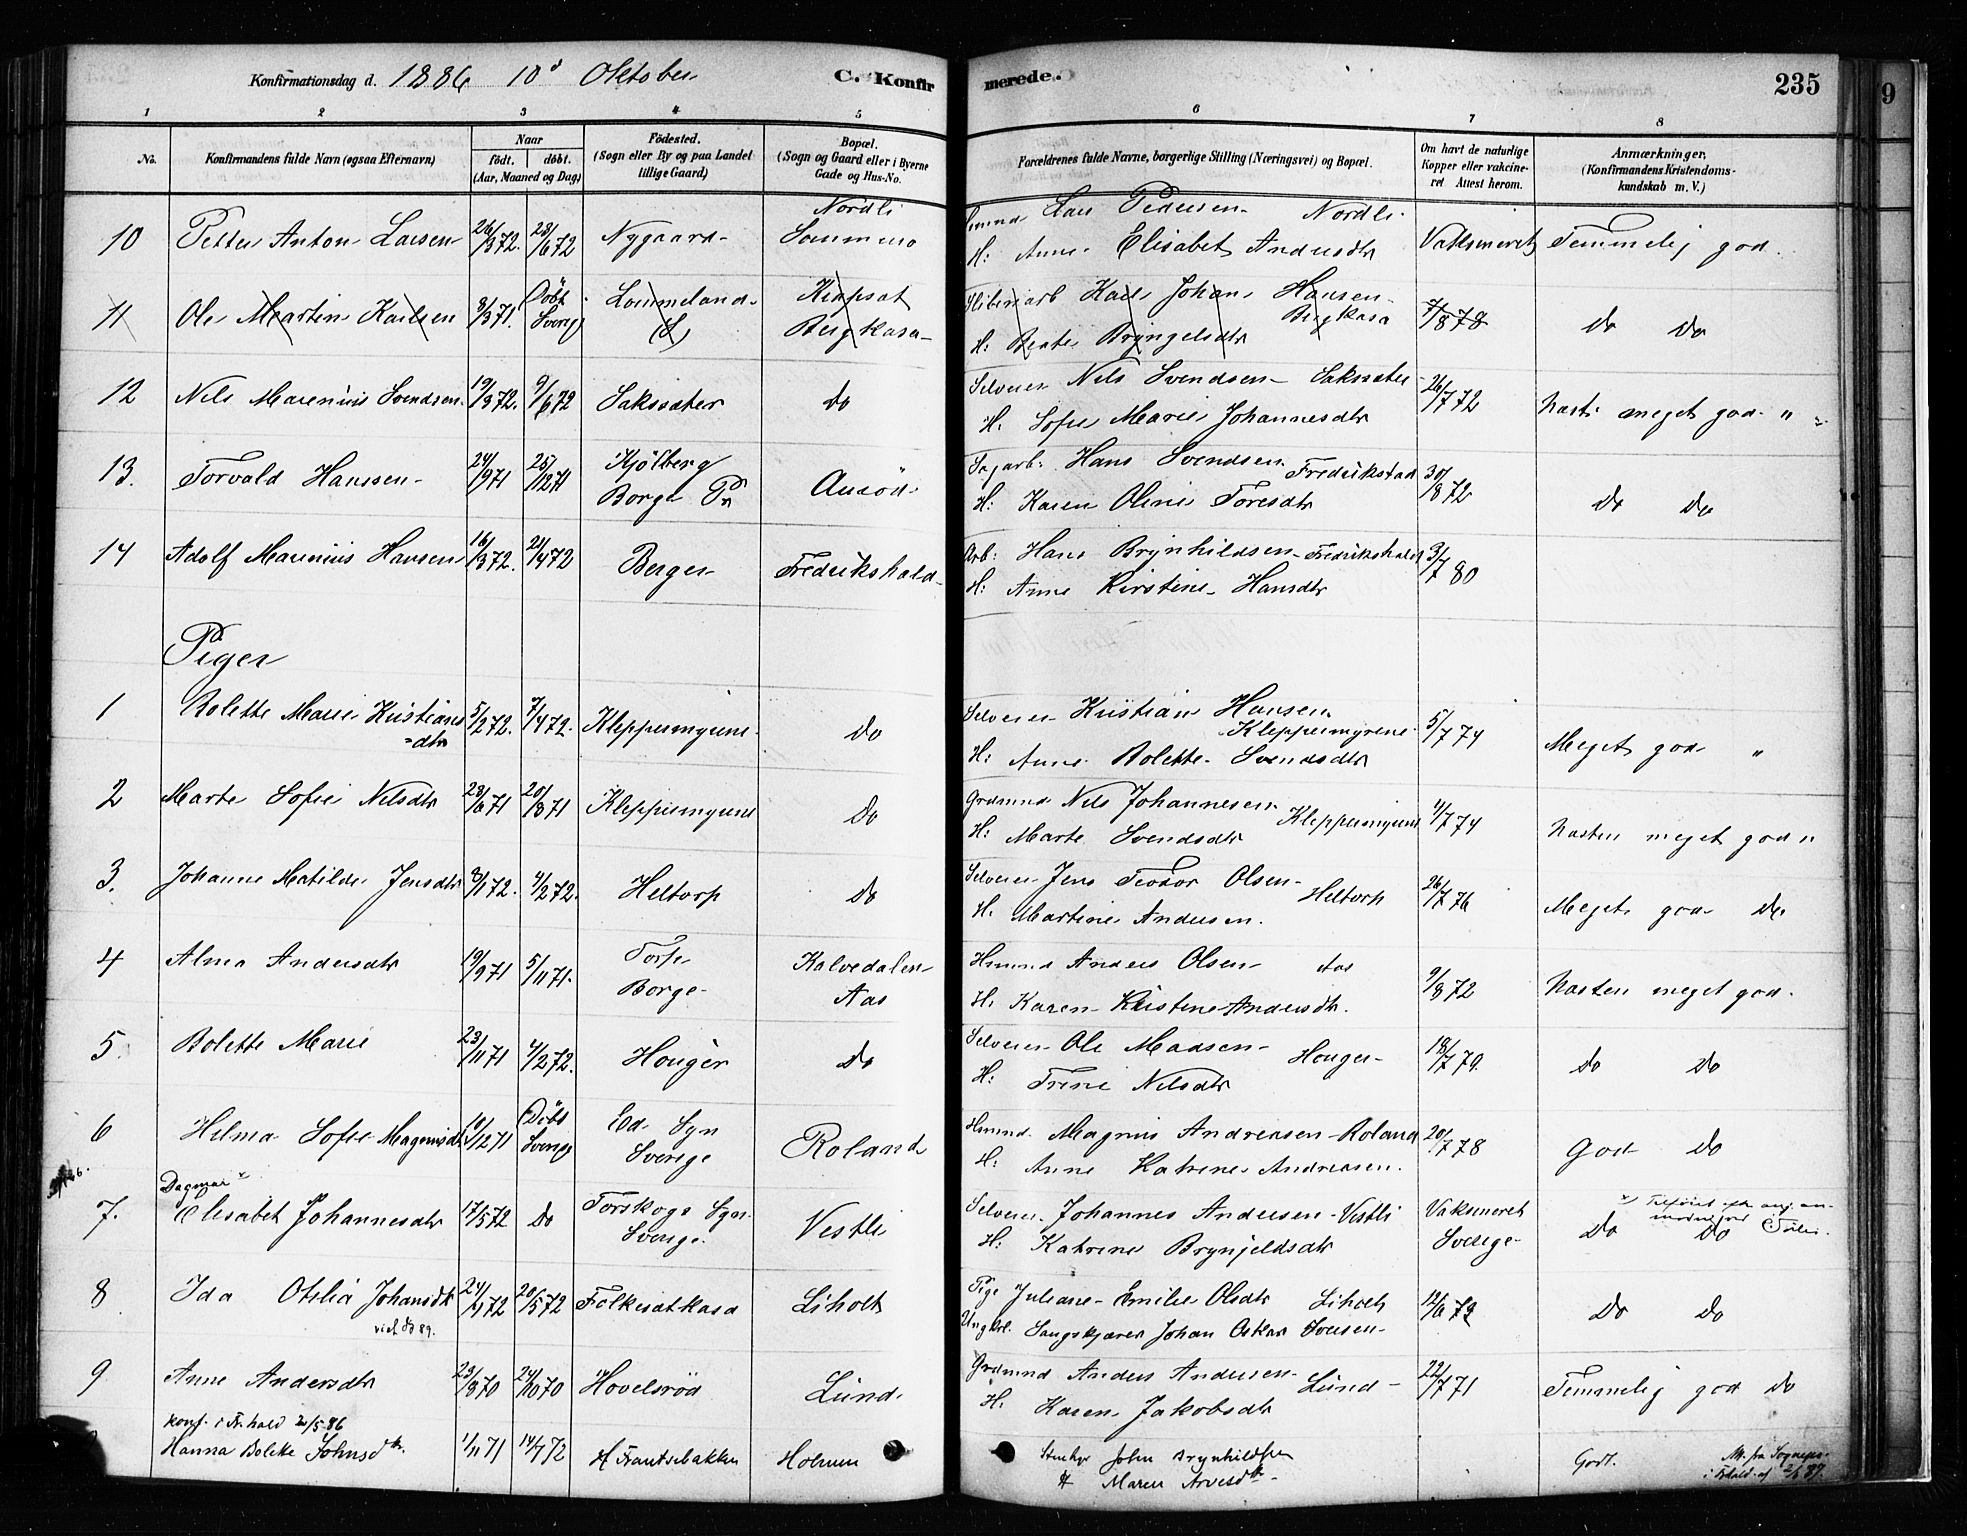 Konfirmationsdag d. 1886 10d Oktober C. Konfir
merede. 235
1 2 3 4 5 6 7 8
No. Konfirmandens fulde Navn (ogsaa Efternavn)
Naar
födt. döbt.
(Aar, Maaned og Dag)
Födested.
(Sogn eller By og paa Landet
tillige Gaard)
Bopæl.
(Sogn og Gaard eller i Byerne
Gade og Hus-No.
Forældrenes fulde Navne, borgerlige Stilling (Næringsvei) og Bopæl.
Om havt de naturlige
Kopper eller vakcine-
ret Attest herom.
Anmærkninger,
(Konfirmandens Kristendoms-
kundskab m. V.)
10 Petter Anton Larsen 26/3 72. 28/6 72 Nygaard Nordli
Sommero
Lars Pedersen Nordli
H: Anne Elisabet Andersdtr Vaksineret Temmelig god.
11 Ole Martin Karlsen 8/3 71. Döbt
Sverig
Lommeland
(S)
Krapsat
Bergkasa
Sliberiarb Karl Johan Hansen
Bergkasa
H: Beate Bryngelsdtr 7/8 78 Do Do
12 Nils Marenius Svendsen 19/3 72. 9/6 72 Saksæter Do
Selveier Nils Svendsen Saksæter
H. Sofie Marie Johannesdtr 26/7 72 Næst. meget god "
13. Torvald Hanssen 24/9 71 25/12 71 Kjölberg
Borge Pr
Auröd
Sagarb: Hans Svendsen Fredrikstad
H: Karen Oline Toresdtr 30/8 72 Do Do
14 Adolf Marenius Hansen 16/3 72. 21/4 72 Berger Fredrikshald
Arb: Hans Brynhildsen Fredrikshald
H: Anne Kirstine Hansdtr 3/7 80
Piger
1 Bolette Marie Kristians
=dtr 5/2 72. 7/4 72. Kleppermyrene Do
Selveier Kristian Hansen
Kleppermyrene
H: Anne Bolette Svendsdtr 5/7 74 Meget god "
2 Marte Sofie Nilsdtr 23/6 71 20/8 71 Kleppermyrene Do
Grdmnd Nils Johannesen Kleppermyrene
H: Marte Svendsdtr 1/7 74 Næsten meget god "
3. Johanne Matilde Jensdtr 8/1 72. 4/2 72. Heltorp Do
Selveier Jens Teodor Olsen Heltorp
H. Martine Andersen. 26/7 76 Meget god Do
4 Alma Andersdtr 19/9 71 5/11 71. Torp
Borge
Kalvedalen
Aas
Hmnd Anders Olsen Aas
H. Karen Kristine Andersdtr. 9/8 72 Næsten meget god.
5. Bolette Marie 23/11 71 4/2 72. Houger Do
Selveier Ole Madsen Houger
H: Trine Nilsdtr 18/7 79. Do Do
6 Hilma Sofie Magnusdtr 10/12 71 Döbt
Sverig
Ed Sgn
Sverige
Roland
Hmnd. Magnus Andreasen Roland
H: Anne Katrine Andreasen. 20/7 78 God Do
Dagmar x
7. Elisabet Johannesdtr 17/5 72 Do Torskogs Sgn.
Sverige.
Vestli
Selveier Johannes Andersen Vestli
H: Katrine Brynjeldsdtr
Vaksineret
Sverige
Do Do
8 Ida Otilia Johansdtr 24/4 72 20/5 72 Folkesatkasa Liholt
Pige Juliane Emilie Olsdtr Liholt
Ungkrl. Sangskjærer Johan Oskar Iversen 12/6 73 Do Do
9 Anne Andersdtr 23/9 70 24/10 70 Hovelsröd Lund
Grdmnd Anders Andersen Lund
H. Karen Jakobsdtr 22/7 71 Temmelig god Do
konf. i Fr.hald 20/5 86
Hanna Boleke Johnsdtr. 1/11 71 14/7 72 H Frantsebakken Holmen
John Brynhildsen
H Maren Arvesdtr Godt.